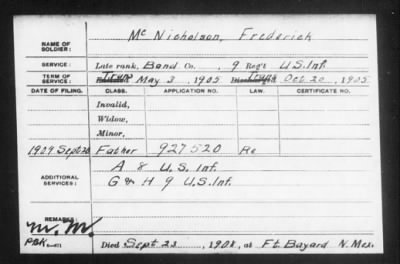 NAME OF SOLDIER: Mc Nicholson, Frederick
SERVICE: Late rank, Band Co. , 9 Reg't U.S. Inf.
TERM OF SERVICE: Trans May 3, 1905 Trans Oct. 20, 1905
DATE OF FILING. CLASS. APPLICATION NO. LAW. CERTIFICATE NO.
Invalid,
Widow,
Minor,
1909 Sept 20 Father 927520 Re
ADDITIONAL SERVICES: A 8 U.S. Inf.
G & H 9 U.S. Inf.
REMARKS:
M. M.
PBK
Died Sept 23, 1908, at Ft. Bayard N. Mex.